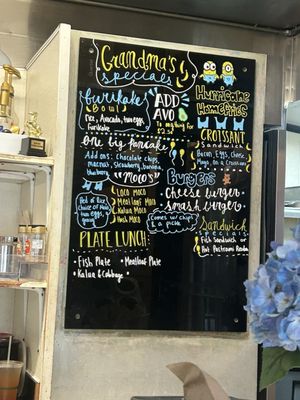 Grandma's
specials
Furikake
Bowl
Rice, Avocado, two eggs,
Furikake
ADD
AVO
to anything for
$2.35
one big pancake
Add ons: Chocolate chips,
macnuts, strawberry, banana,
blueberry
"Moco's"
Bed of rice
Choice of Moco
two eggs,
gravy
Loco Moco
Meatloaf Moco
Kalua Moco
PLATE LUNCH:
• Fish Plate
• Meatloaf Plate
• Kalua & Cabbage
Hurricane
Homefries
CROISSANT
Sandwich
Bacon, Eggs, Cheese,
Mayo on a Croissant
Burgers
Cheese burger
smash burger
Comes w/ chips
& a pickle
Sandwich
specials
Fish Sandwich or
Hot Pastrami